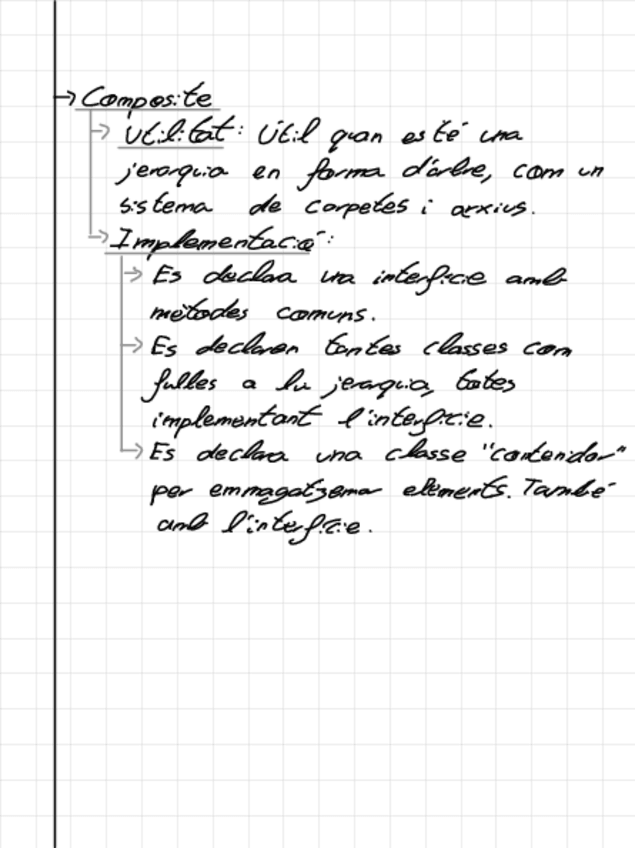 → Composite
→ Utilitat: Útil quan es té una
jerarquia en forma d'arbre, com un
sistema de carpetes i arxius.
→ Implementació:
→ Es declara una interfície amb
mètodes comuns.
→ Es declaren tantes classes com
fulles a la jerarquia, totes
implementant l'interfície.
→ Es declara una classe "contenidor"
per emmagatzemar elements. També
amb l'interfície.